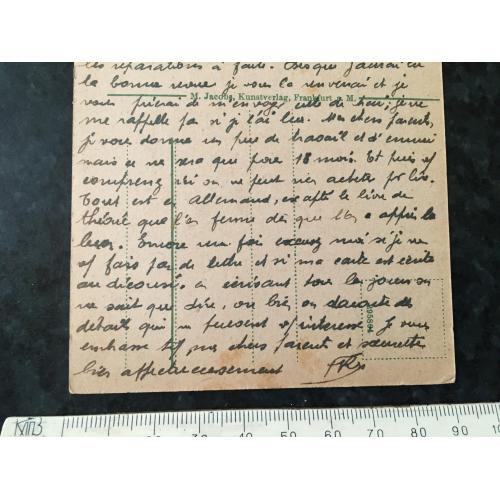 les réparations à faire. Dès que j'aurai eu
la bonne revue je vous la renverrai et je
M. Jacobs, Kunstverlag, Frankfurt a. M.
vous prierai de m'envoyer celle de
me rappelle pas si je l'ai lue. Mes chers parents,
je vous donne un peu de travail et d'ennui
mais ce ne sera que pour 18 mois. Et puis
comprenez ici on ne peut rien acheter pr lire.
Tout est en allemand, excepté le livre de
théorie que l'on ferme dès que l'on a appris la
leçon. Encore une fois excusez moi si je ne
fais pas de lettre et si ma carte est écrite
au décousu, en écrivant tous les jours on
ne sait que dire, ou bien on raconte des
détails qui ne peuvent intéresser. Je vous
embrasse tous, mes chers parents et sœurettes
bien affectueusement
595804
30 40 50 60 70 80 90